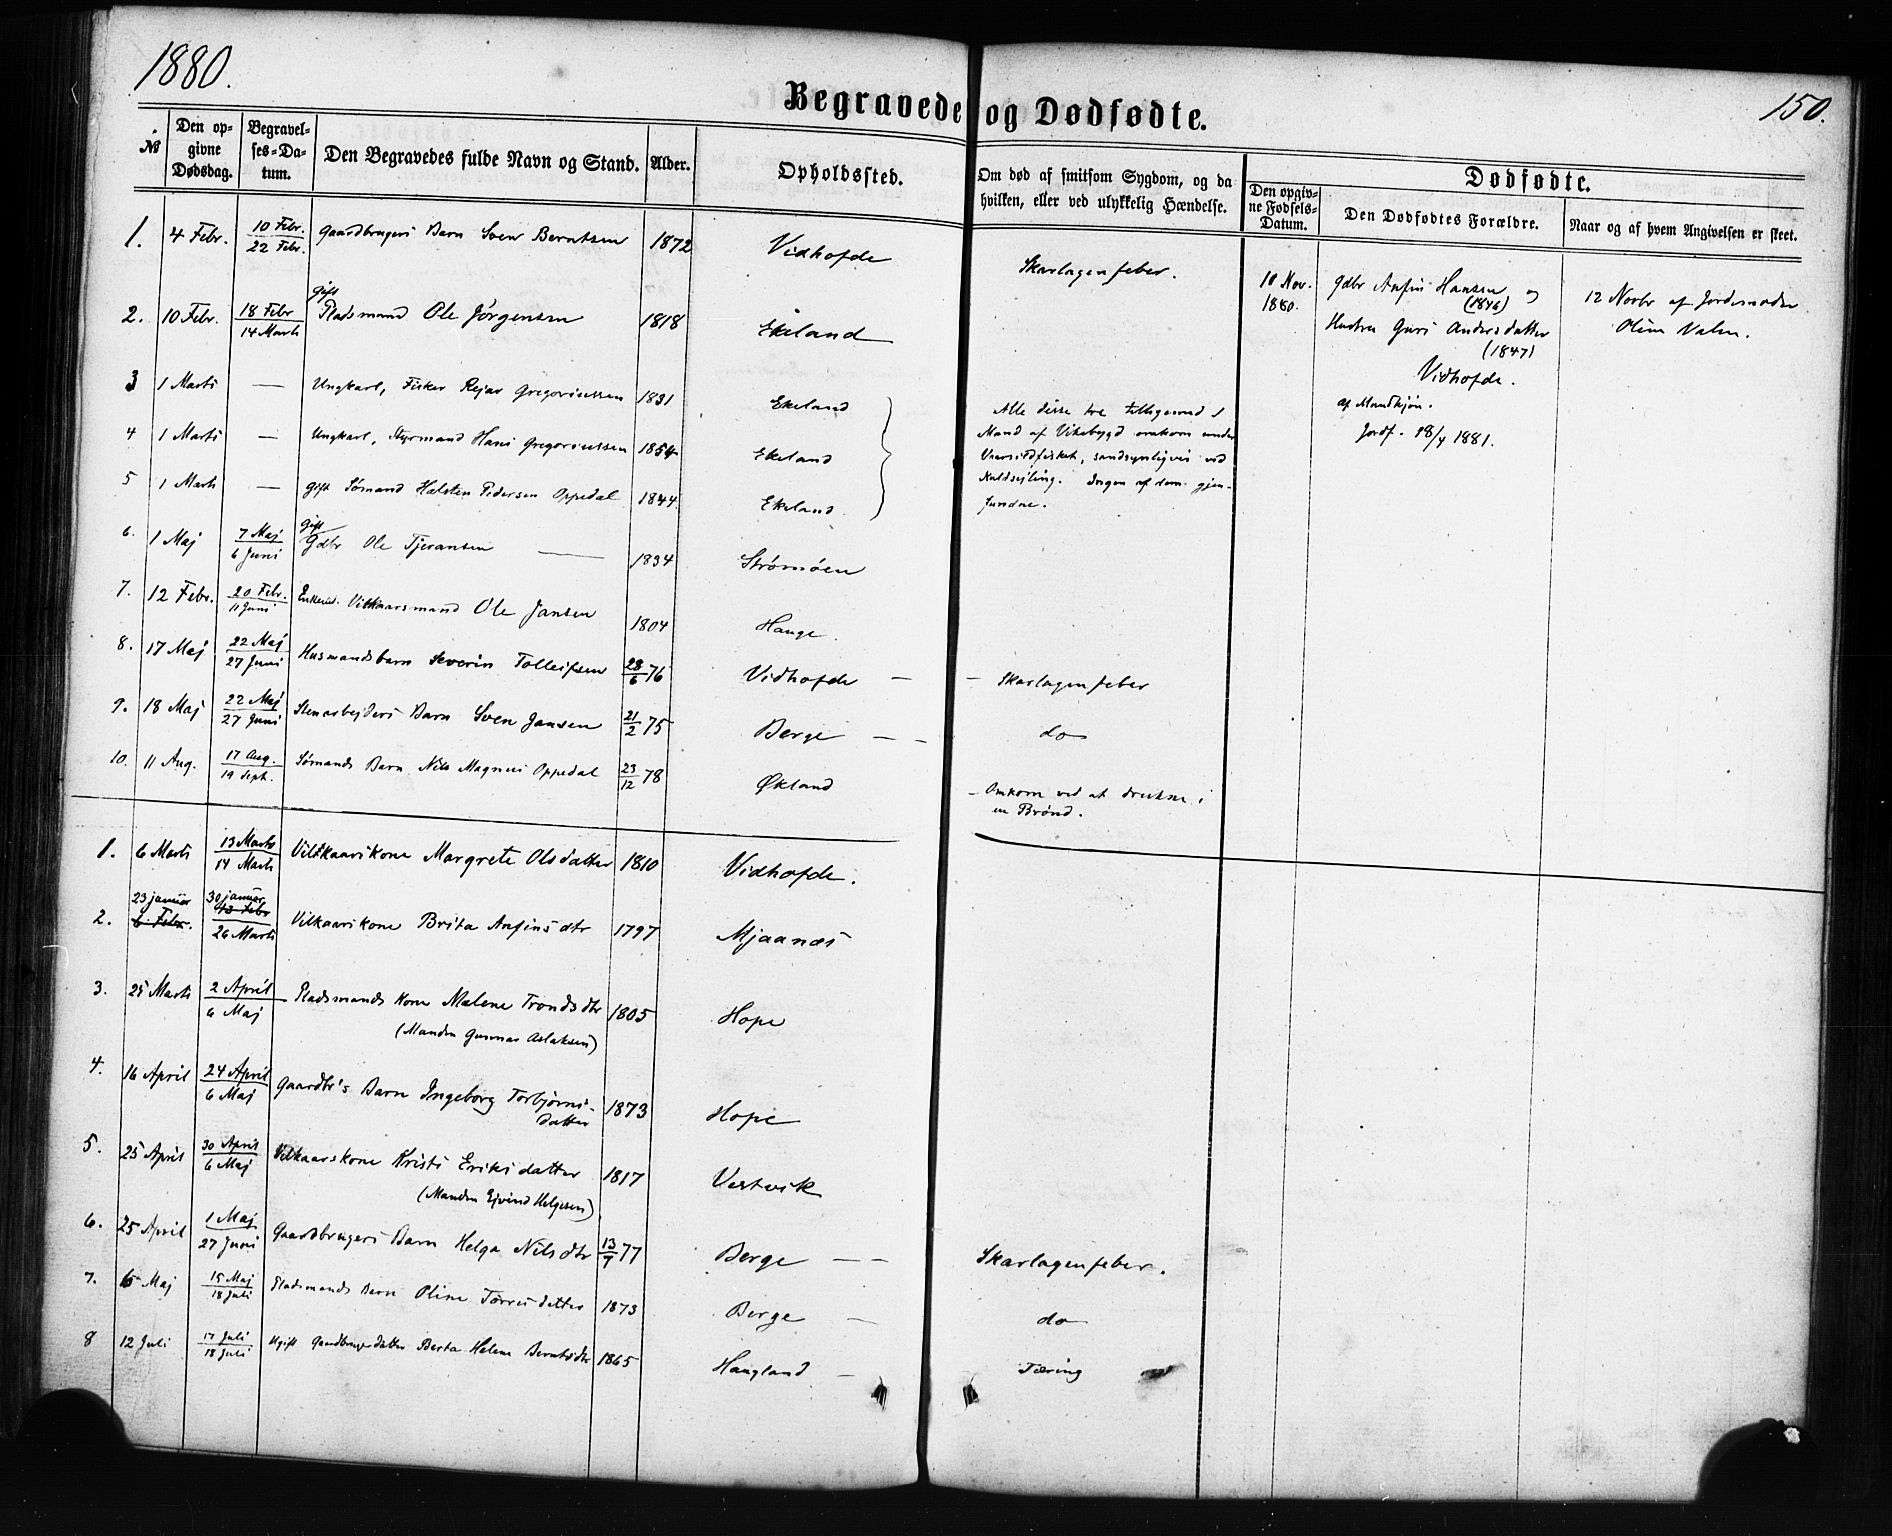 1880.
150.
Begravede og Dødfødte.
№
Den opgivne Dødsdag.
Begravelses-Datum.
Den Begravedes fulde Navn og Stand.
Alder.
Opholdssted.
Om død af smitsom Sygdom, og da hvilken, eller ved ulykkelig Hændelse.
Dødfødte.
Den opgivne Fødsels-Datum.
Den Dødfødtes Forældre.
Naar og af hvem Angivelsen er skeet.
1. 4 Febr. 10 Febr. / 22 Febr. Gaardbrugers Barn Sven Berntsen 1872 Vidhofde Skarlagenfeber.
10 Nov. 1880. Gdbr Anfin Hansen og (1846)
Hustru Guri Andersdatter (1847)
Vidhofde.
af Mandkjøn.
Jordf. 18/4 1881.
12 Novbr af Jordemoder
Oline Valen.
2. 10 Febr. 18 Febr / 14 Marts gift Pladsmand Ole Jørgensen 1818 Ekeland
3 1 Marts — Ungkarl, Fisker Rejar Gregoriussen 1831 Ekeland
4 1 Marts — Ungkarl, Styrmand Hans Gregoriussen 1854 Ekeland
5 1 Marts — gift Sømand Halsten Pedersen Oppedal 1844. Ekeland.
Alle disse tre tilligemed 1
Mand af Vikebygd omkom under
Vaarsildfisket, sandsynligvis ved
Kuldsejling. Ingen af dem gjen-
fundne.
6. 1 Maj 7 Maj / 6 Juni gift Gdbr Ole Tjeransen — 1834 Strømøen
7. 12 Febr. 20 Febr. / 11 Juni Enkem. Vilkaarsmand Ole Jansen 1804 Hauge.
8. 17 Maj 22 Maj / 27 Juni Husmandsbarn Severin Tolleifsen 28/6 76 Vidhofde — — Skarlagenfeber
9. 18 Maj 22 Maj / 27 Juni Stenarbejders Barn Sven Jansen 21/2 75 Berge — — do
10. 11 Aug. 17 Aug. / 19 Sept. Sømands Barn Nils Magnus Oppedal 23/12 78 Økland — Omkom ved at drukne i
en Brønd.
1. 6 Marts 13 Marts / 14 Marts Vilkaarskone Margrete Olsdatter 1810 Vidhofde.
2. 23 januar 6 Febr. 30 januar 13 Febr / 26 Marts Vilkaarskone Brita Anfinsdtr 1797 Mjaanæs
3. 25 Marts 2 April / 6 Maj Pladsmands Kone Malene Trondsdtr 1805 Hope
(Manden Gunnar Aslaksen)
4. 16 April 24 April / 6 Maj Gaardbr's Barn Ingeborg Torbjørns-
datter 1873 Hope
5. 25 April 30 April / 6 Maj Vilkaarskone Kristi Eriksdatter 1817 Vestvik
(Manden Ejvind Helgesen)
6. 25 April 1 Maj / 27 Juni Gaardbrugers Barn Helga Nilsdtr 13/7 77 Berge — — Skarlagenfeber.
7. 6 Maj 15 Maj / 18 Juli Pladsmands Barn Oline Torresdatter 1873 Berge — do
8 12 Juli 17 Juli / 18 Juli Ugift Gaardbrugerdatter Berta Helene Berntsdtr 1865 Haugland — Tæring